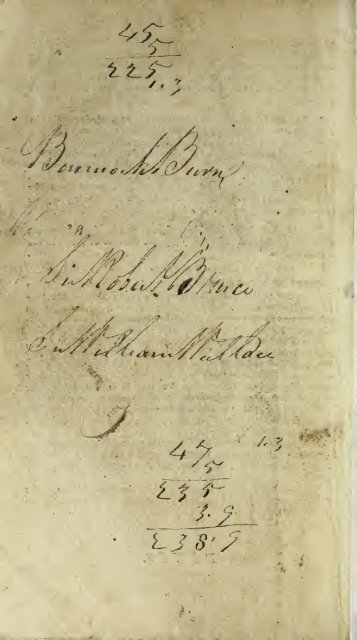 45
5
225
1.3
Bannocks Burn
Sir Robert Bruce
Sir William Wallace
47 1.3
5
235
3.9
238.9